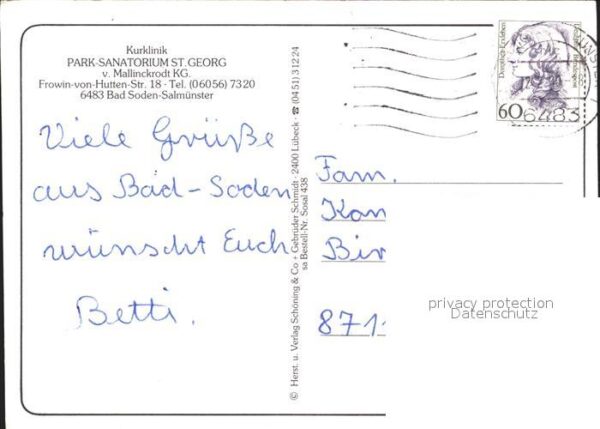 Kurklinik
PARK-SANATORIUM ST. GEORG
v. Mallinckrodt KG.
Frowin-von-Hutten-Str. 18 - Tel. (06056) 7320
6483 Bad Soden-Salmünster
Viele Grüße
aus Bad-Soden
wünscht Euch
Betti.
© Herst. u. Verlag Schöning & Co + Gebrüder Schmidt · 2400 Lübeck · ☎ (0451) 31224
sa Bestell-Nr. Sosal 438
Dorothea Erxleben
60
6483
Fam.
Kan
Bir
871
privacy protection
Datenschutz